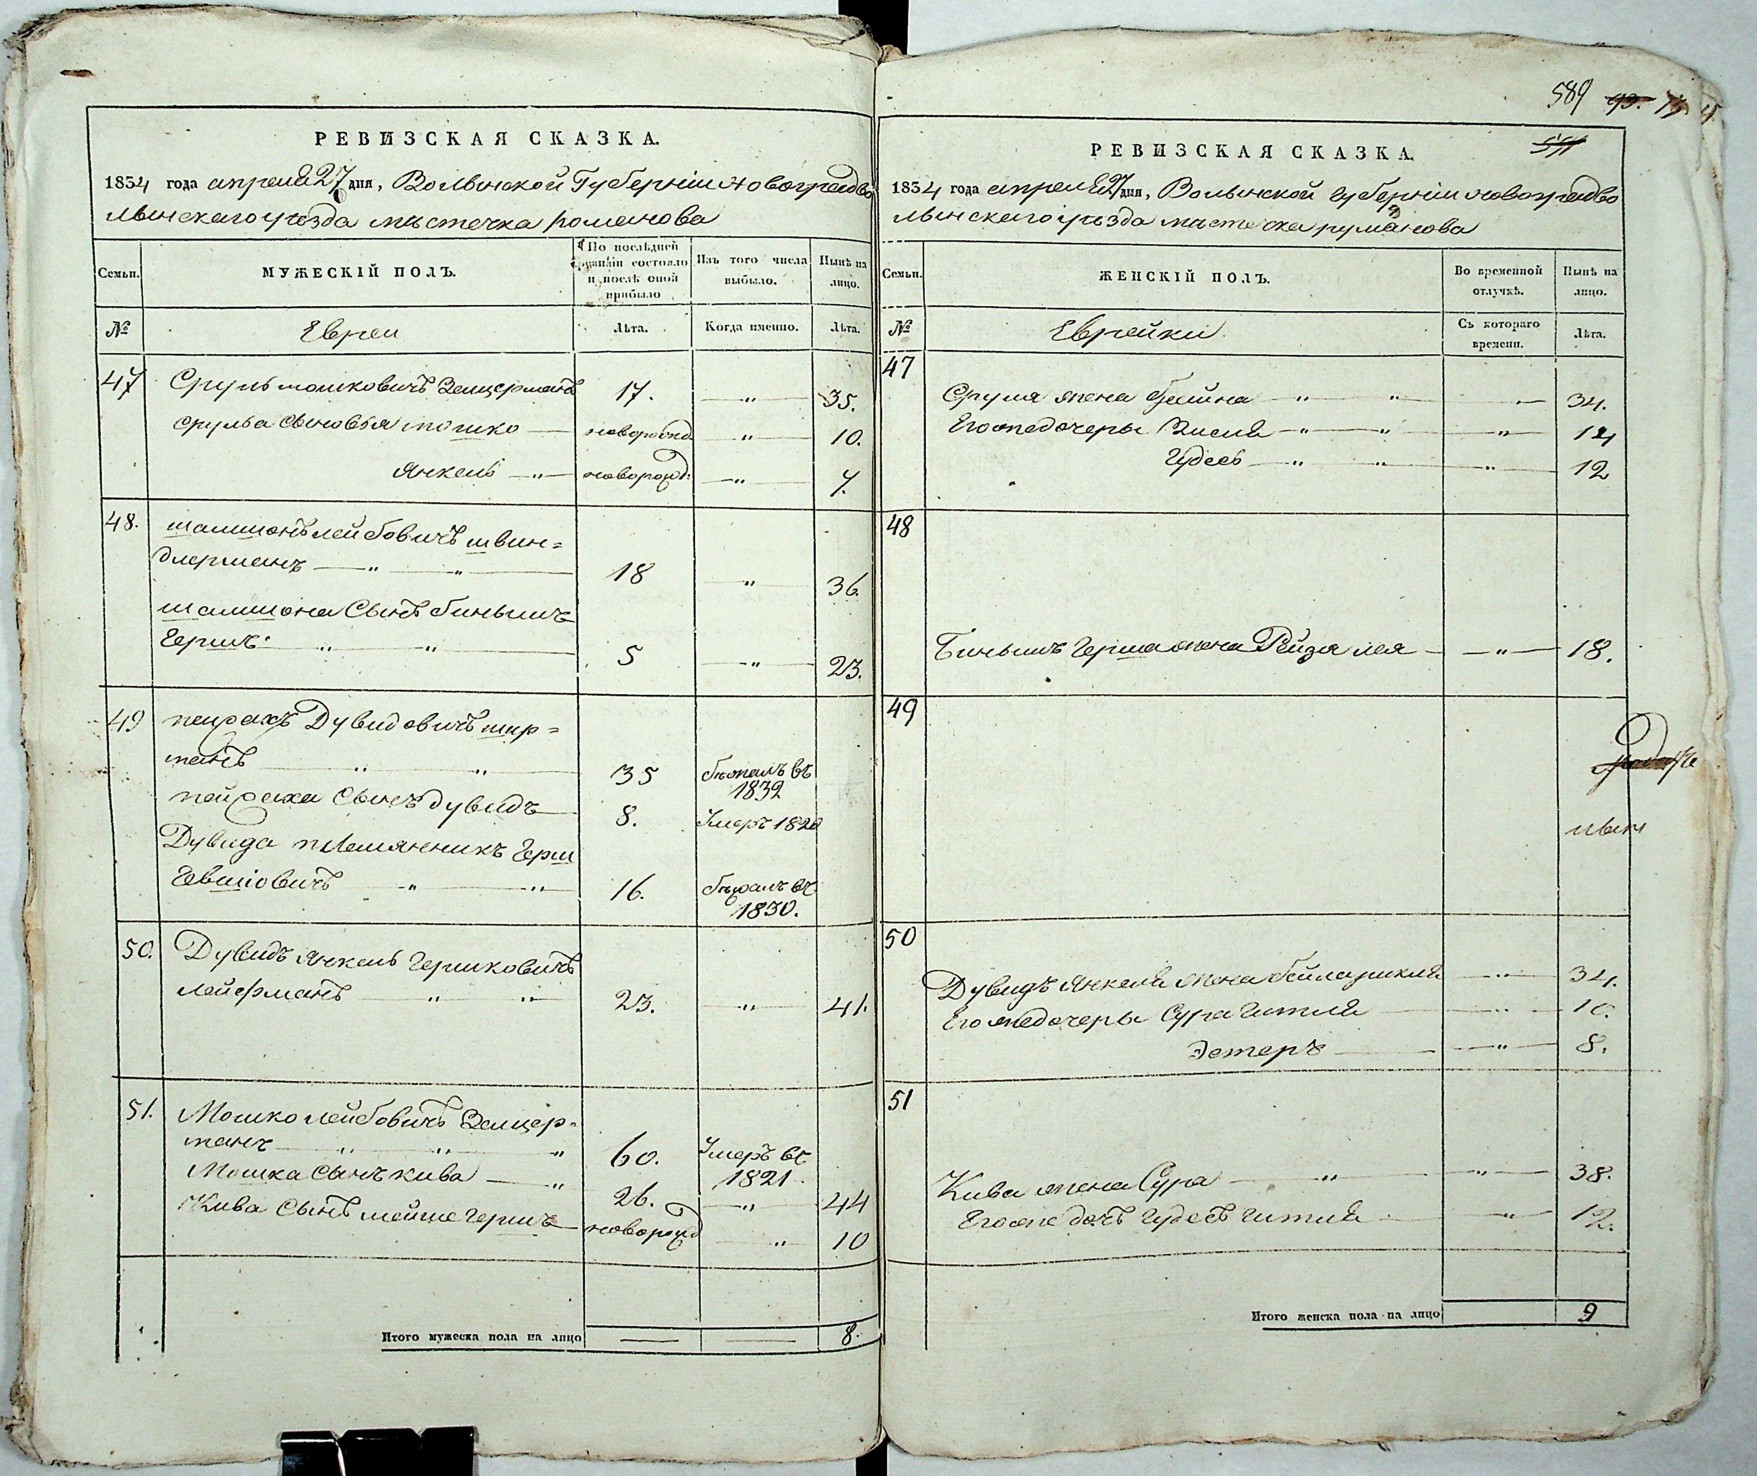 РЕВИЗСКАЯ СКАЗКА.
1834 года апреля 27 дня, Волынской Губерніи Новоградво
лынскаго уѣзда мѣстечка романова
Семьи.
МУЖЕСКІЙ ПОЛЪ.
По послѣдней
ревизіи состояло
и послѣ оной
прибыло
Изъ того числа
выбыло.
Нынѣ на
лицо.
№
Евреи
Лѣта.
Когда именно.
Лѣта.
47 Сруль мошковичъ Зелцерманъ 17. — " — 35.
Срулья сыновья мошко — новорожд — " — 10.
Янкель — " — новорожд: — " — 7.
48. шамшонъ лейбовичъ швин=
длерманъ — " — " — 18 — " — 36.
шамшона Сынъ биньшъ
Гершъ: " — " — 5 — " — 23.
49 пейрахъ Дувидовичъ шир=
манъ " " 35 бѣжалъ въ
1832
пейраха Сынъ дувидъ 8. Умеръ 1820
Дувида племянникъ Герш
Евшіовичъ — " — " — 16. бѣжалъ въ
1830.
50. Дувидъ Янкель Гершковичъ
лейерманъ " " 23. — " — 41.
51. Мошко лейбовичъ Зелцер=
манъ " " " 60. Умеръ въ
1821.
Мошка сынъ кива — " 26. — " — 44
Кива Сынъ мойше Гершъ — новорожд — " — 10
Итого мужеска пола на лицо — — 8.
589
РЕВИЗСКАЯ СКАЗКА.
1834 года апреля 27 дня, Волынской губерніи Новоградво
лынскаго уѣзда мѣстечка румановa
Семьи.
ЖЕНСКІЙ ПОЛЪ.
Во временной
отлучкѣ.
Нынѣ на
лицо.
№
Еврейки
Съ котораго
времени.
Лѣта.
47
Сруля жена — " — " — 34.
Его же дочеры Зисля — " — " — " — 14
Гудесь — " — " — " — 12
48
Биньшъ Герша жена Рейзя лея — " — 18.
49
50
Дувидъ Янкеля жена — " — 34.
Его же дочеры Сура Гитля — " — 10.
Эстеръ — " — 8.
51
Кива жена Сура — " — " — 38.
Его же дочь Гудесь Гитля — " — 12.
Итого женска пола на лицо 9